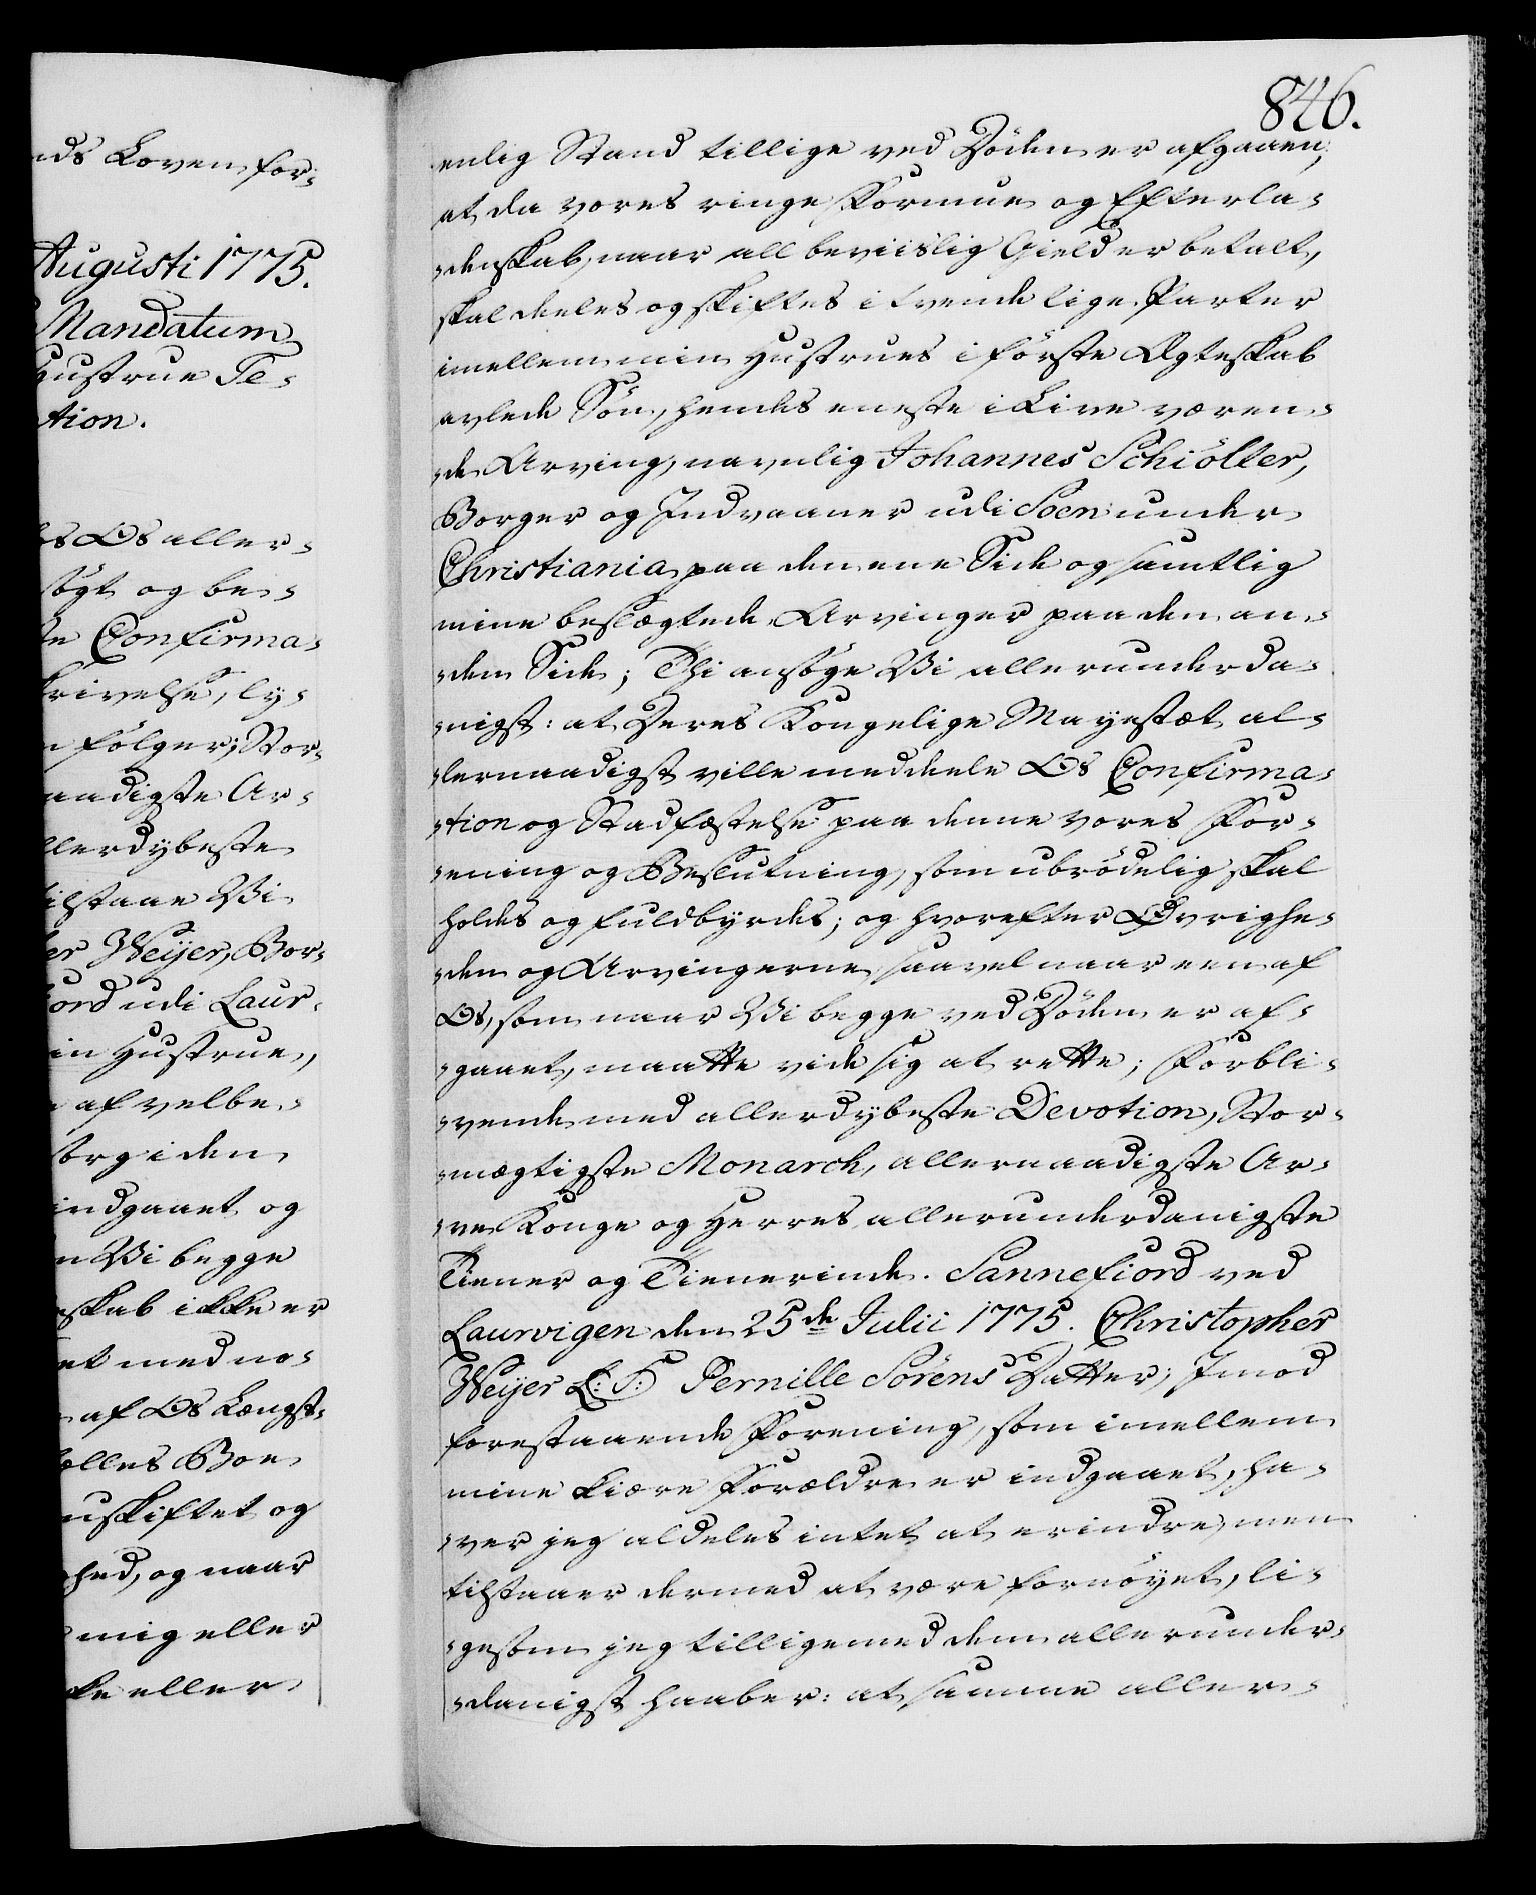 nds Loven for-
Augusti 1775.
Mandatum
Hustrue Te-
tion.
Os aller-
søgt og be-
Confirma-
skrivelse, ly-
følger; Stor-
naadigste Ar-
llerdybeste
tilstaae Vi
er Weijer, Bor-
iord udi Laur-
in Hustrue,
af velbe-
i den
indgaaet og
n Vi begge
skab ikke er
et med no-
af Os Længst-
elles Boe
uskiftet og
hed, og naar
mig eller
ke eller
846.
enlig Stand tillige ved Døden er afgaaen;
at da vores ringe Formue og Efterla-
denskab, naar all beviislig Gield er betalt,
skal deeles og skiftes i tvende lige Parter
imellem min Hustrues i første Ægteskab
avlede Søn, hendes eneste i Live væren-
de Arving, navnlig Johannes Schiötter,
Borger og Indvaaner udi Soen under
Christiania paa den ene Side og samtlig
mine beslægtede Arvinger paa den an-
den Side; Thi ansøge Vi allerunderda-
nigst: at Deres Kongelige Mayestæt al-
lernaadigst ville meddeele Os Confirma-
tion og Stadfæstelse paa denne vores For-
ening og Beslutning, som ubrødelig skal
holdes og fuldbyrdes; og hvorefter Øvrighe-
den og Arvingerne, saavel naar een af
Os, som naar Vi begge ved Døden er af-
gaaet, maatte vide sig at rette; Forbli-
vende med allerdybeste Devotion, Stor-
mægtigste Monarch, allernaadigste Ar-
ve Konge og Herres allerunderdanigste
Tiener og Tienerinde. Sannefiord ved
Laurvigen den 25de Julii 1775. Christopher
Weijer L: S: Pernille Sörens Datter; Imod
forestaaende Forening, som imellem
mine kiære Forældre er indgaaet, ha-
ver jeg aldeles intet at erindre, men
tilstaaer dermed at være fornøyet, li-
gesom jeg tilligemed dem allerunder-
danigst haaber: at samme aller-